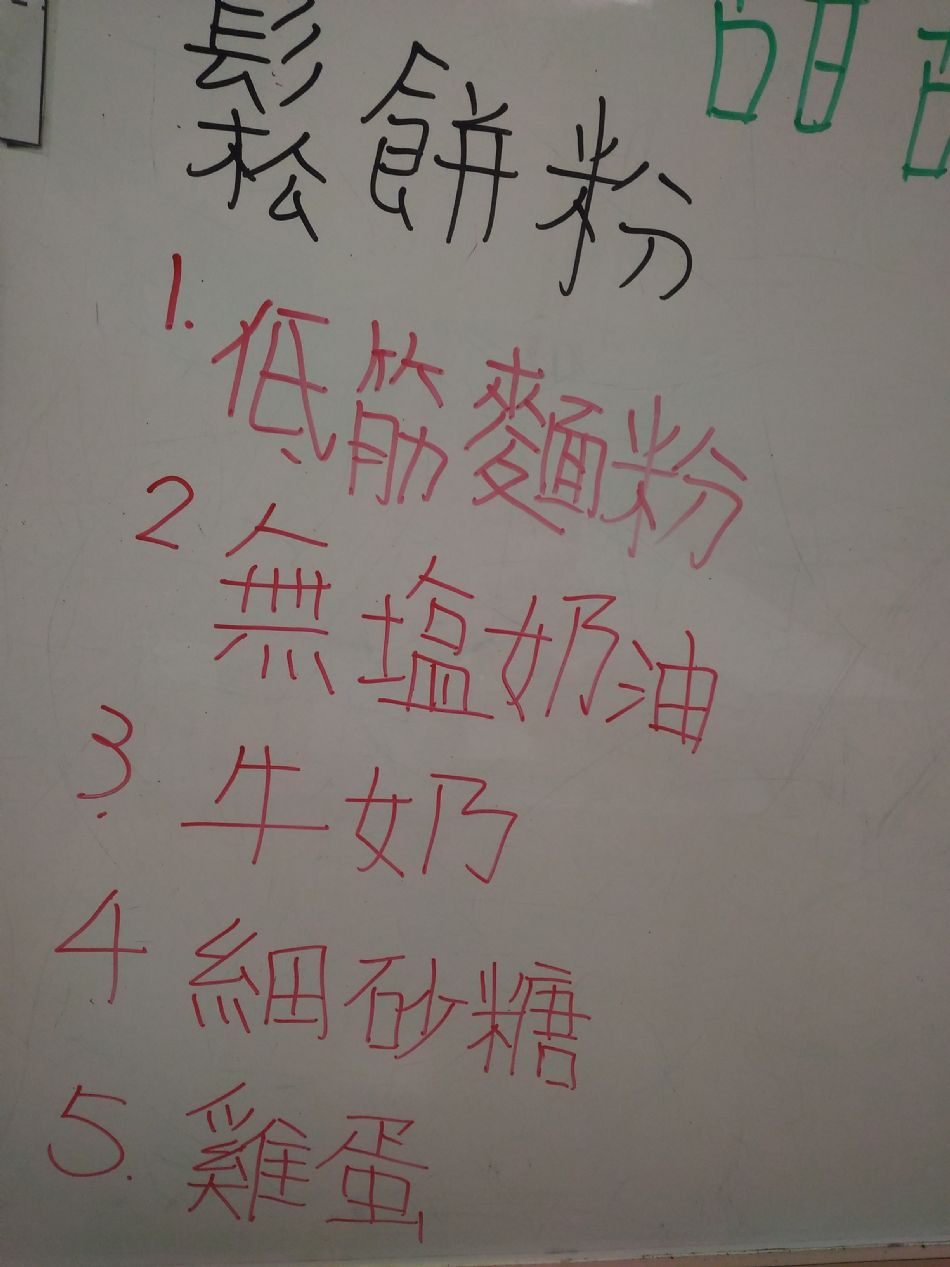 鬆餅粉
1. 低筋麵粉
2 無塩奶油
3. 牛奶
4 細砂糖
5. 雞蛋